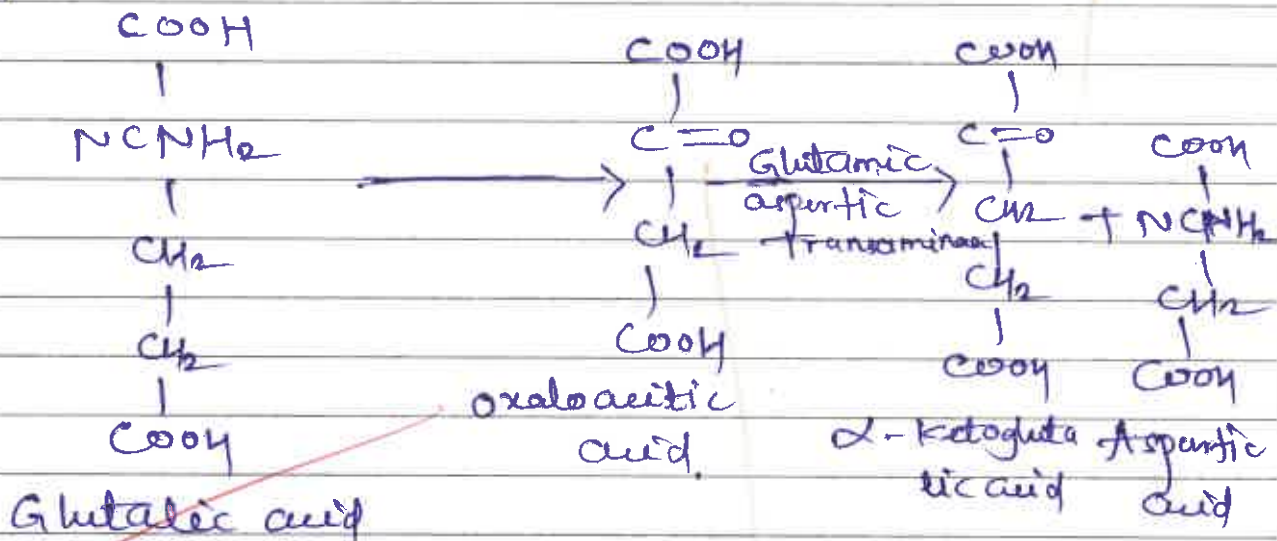 COOH
NCNH2
CH2
CH2
COOH
Glutalic acid
COOH
C=O
CH2
COOH
oxaloacitic
acid.
Glutamic
aspertic
transaminase
COOH
C=O
CH2
CH2
COOH
α-Ketogluta
lic acid
+
COOH
NCNH2
CH2
COOH
Aspartic
acid